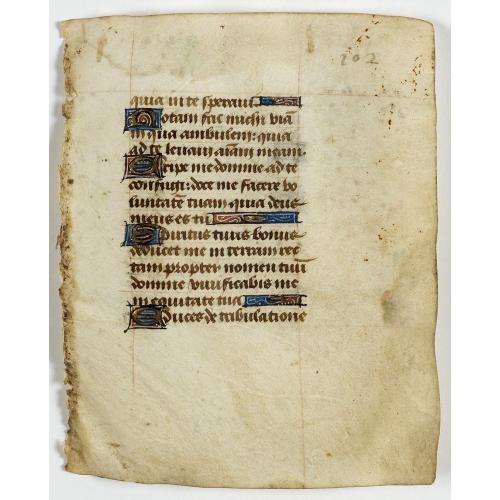 202
quia in te speraui
Notam fac michi uiā
in qua ambulem: quia
ad te leuaui aīam meam
Eripe me domine ad te
confugi: doce me facere vo
luntatē tuam quia deus
meus es tu
Spiritus tuus bonus
deducet me in terram rec
tam propter nomen tuū
domine uiuificabis me
in equitate tua
Educes de tribulatione